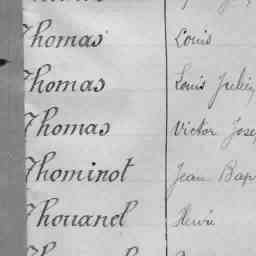 Thomas Louis
Thomas Louis Julien
Thomas Victor Jose
Thominot Jean Bap
Thouanel Henri